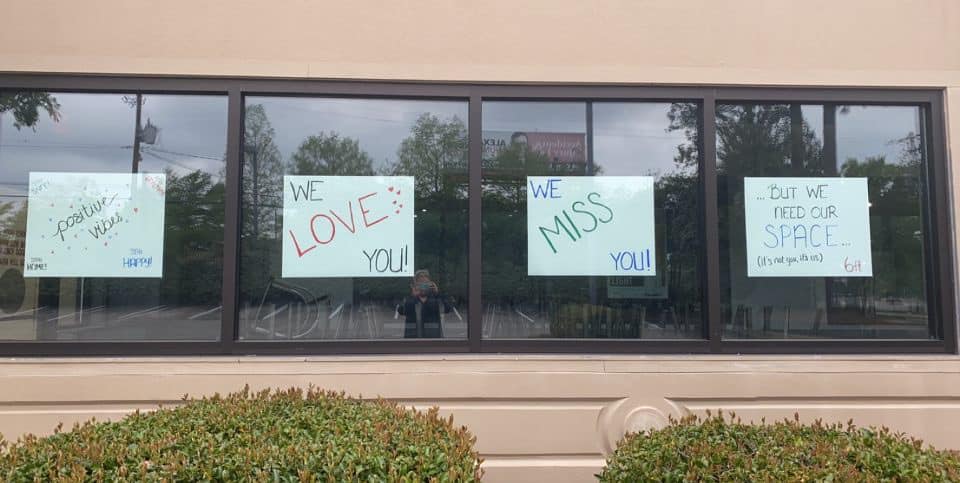 positive
vibes
STAY
HOME!
STAY
HAPPY!
WE
LOVE
YOU!
WE
MISS
YOU!
...BUT WE
NEED OUR
SPACE...
(it's not you, it's us)
6ft